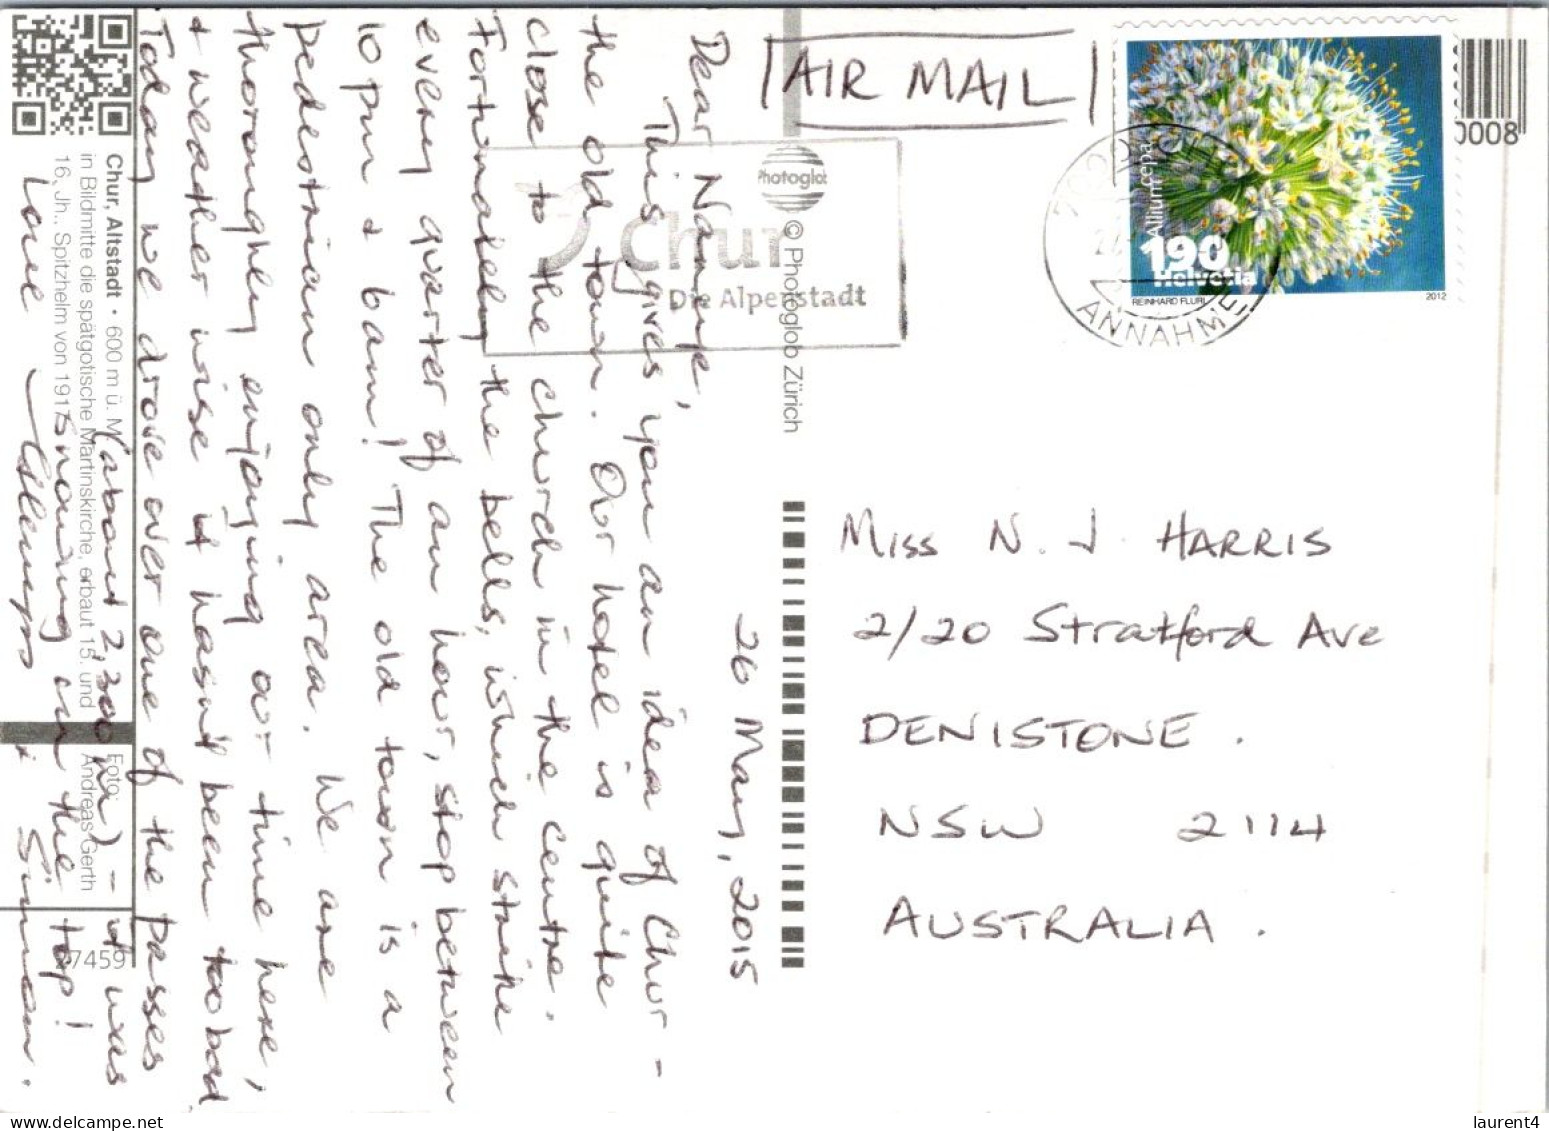 26 May, 2015
Dear Nannye,
This gives you an idea of Chur -
the old town. Our hotel is quite
close to the church in the centre.
Fortunately the bells, which strike
every quarter of an hour, stop between
10 pm & 6am! The old town is a
pedestrian only area. We are
thoroughly enjoying our time here,
& weather wise it hasn't been too bad
Today we drove over one of the passes
(about 2,300 m) - it was
snowing on the top!
Love
& Simon.
AIR MAIL
Miss N. J. HARRIS
2/20 Stratford Ave
DENISTONE.
NSW 2114
AUSTRALIA.
Allium cepa
190
Helvetia
REINHARD FLURI
2012
ANNAHME
0008
Chur
Die Alpenstadt
Photoglob
© Photoglob Zürich
Chur, Altstadt • 600 m ü. M.
in Bildmitte die spätgotische Martinskirche, erbaut 15. und
16. Jh., Spitzhelm von 1917
Foto:
Andreas Gerth
7459
laurent4